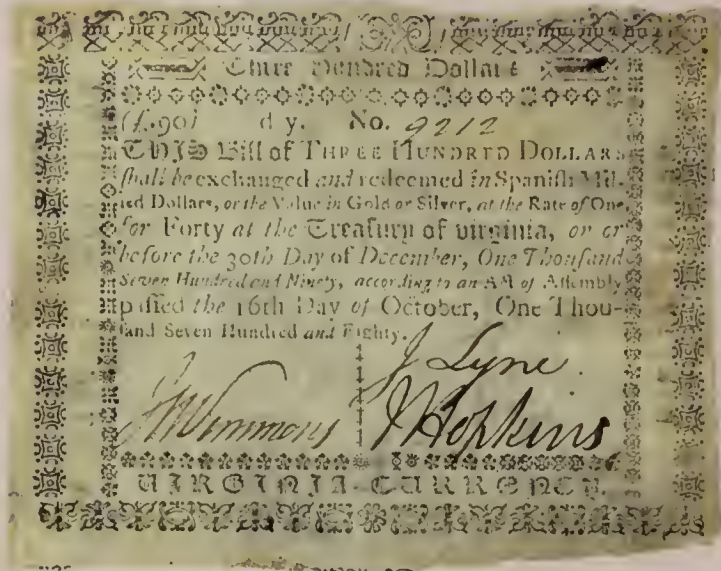 Three Hundred Dollars
(£.90) No. 9212
THIS Bill of THREE HUNDRED DOLLARS
ſhall be exchanged and redeemed in Spaniſh Mil-
led Dollars, or the Value in Gold or Silver, at the Rate of One
for Forty at the Treaſury of virginia, on or
before the 30th Day of December, One Thouſand
Seven Hundred and Ninety, according to an Act of Aſſembly
paſſed the 16th Day of October, One Thou-
ſand Seven Hundred and Eighty.
J Lyne.
Simmons J Hopkins
VIRGINIA CURRENCY.